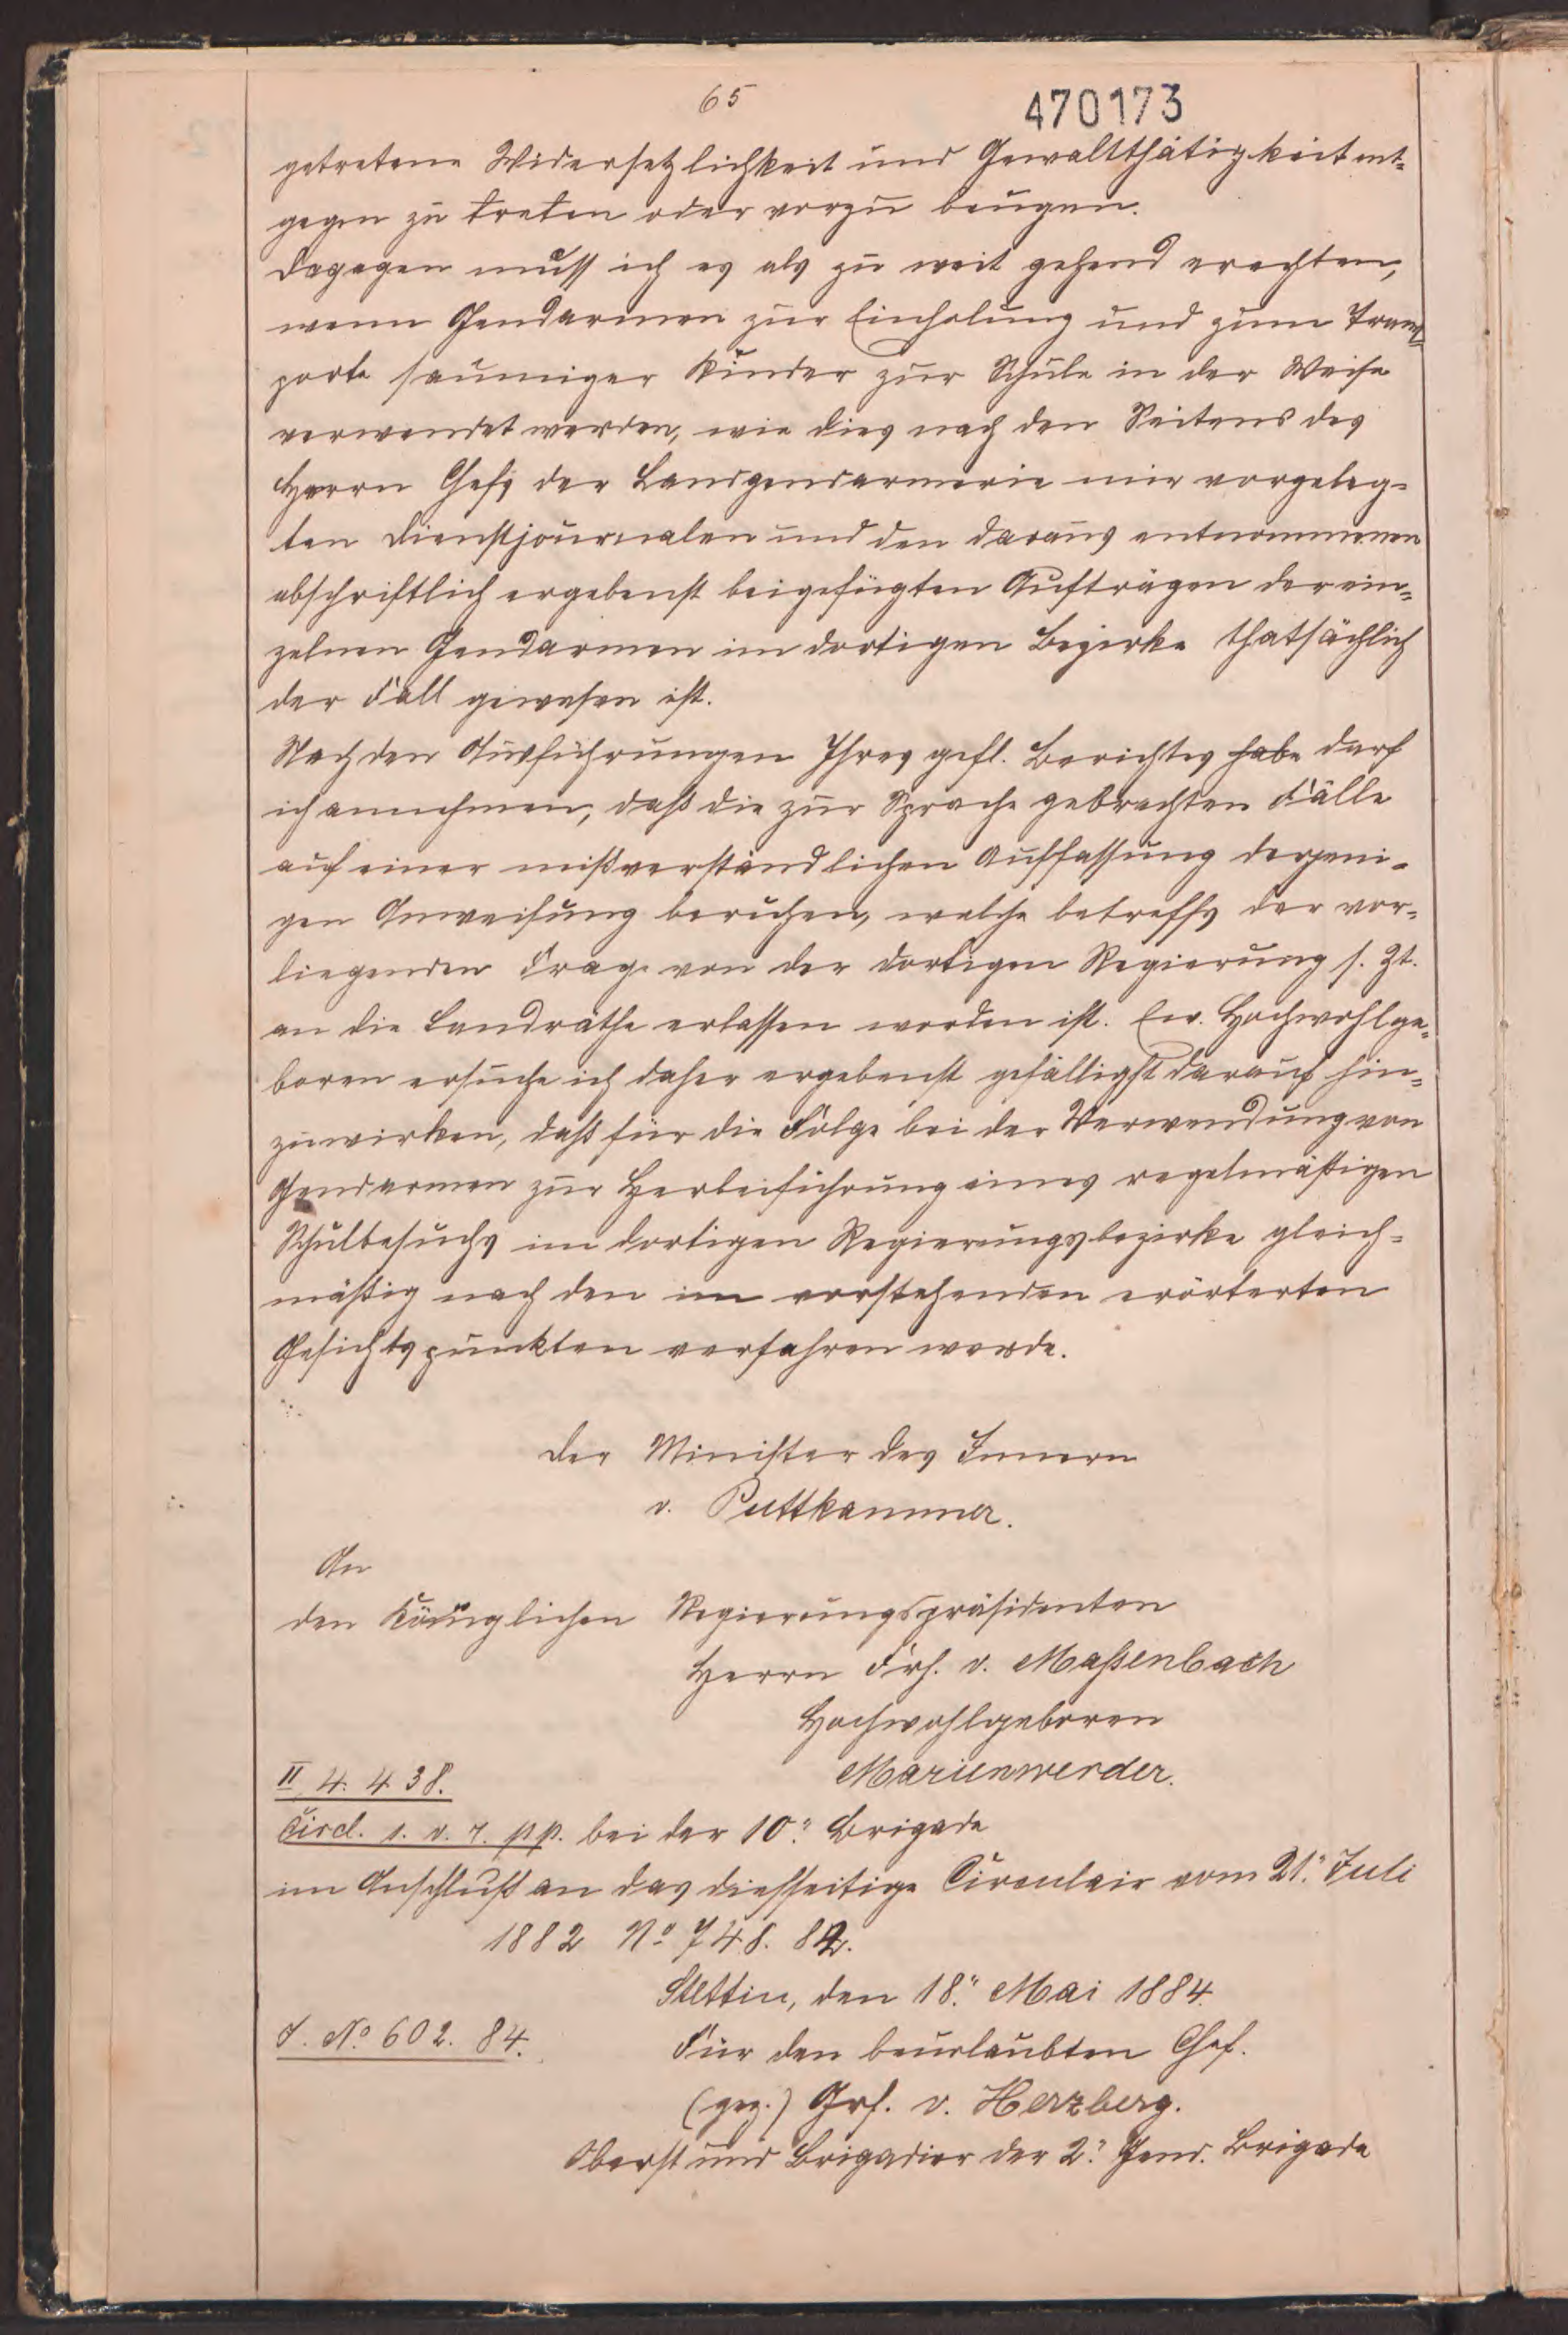 65
470173
getretene Widersetzlichkeit und Gewaltthätigkeit ent-
gegen zu treten oder vorzu beugen.
Dagegen muss ich es als zu weit gehend erachten,
wenn Gendarmen zur Einholung und zum Trans-
porte säumiger Kinder zur Schule in der Weise
verwendet werden, wie dies nach den Seitens des
Herrn Chefs der Landgendarmerie mir vorgeleg-
ten Dienstjournalen und den daraus entnommenen
abschriftlich ergebenst beigefügten Aufträgen der ein-
zelnen Gendarmen im dortigen Bezirke thatsächlich
der Fall gewesen ist.
Nach den Ausführungen Ihres gefl. Berichtes habe darf
ich annehmen, daß die zur Sprache gebrachten Fälle
auf einer mißverständlichen Auffassung derjeni-
gen Anweisung beruhen, welche betreffs der vor-
liegenden Frage von der dortigen Regierung s. Zt.
an die Landräthe erlassen worden ist. Ew. Hochwohlge-
boren ersuche ich daher ergebenst gefälligst darauf hin-
zuwirken, daß für die Folge bei der Verwendung von
Gendarmen zur Herbeiführung eines regelmäßigen
Schulbesuchs im dortigen Regierungsbezirke gleich-
mäßig nach den im vorstehenden erörterten
Gesichtspunkten verfahren werde.
Der Minister des Innern
v. Puttkammer.
An
den Königlichen Regierungspräsidenten
Herrn Frh. v. Maßenbach
Hochwohlgeboren
Marienwerder.
II 4. 438.
Circl. s. v. r. pp. bei der 10. Brigade
im Anschluß an das diesseitige Circulair vom 21. Juli
1882 No 748. 82.
Stettin, den 18. Mai 1884.
J. No 602. 84.
Für den beurlaubten Chef.
(gez.) Grf. v. Herzberg.
Oberst und Brigadier der 2. Gend. Brigade